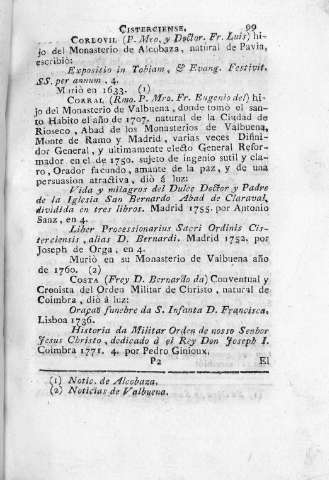 CISTERCIENSE, 99
CORDOVIL (P. Mro. y Doctor. Fr. Luis) hi-
jo del Monasterio de Alcobaza, natural de Pavia,
escribió:
Expositio in Tobiam, & Evang. Festivit.
SS. per annum. 4.
Murió en 1633. (1)
CORRAL (Rmo. P. Mro. Fr. Eugenio del) hi-
jo del Monasterio de Valbuena, donde tomó el san-
to Habito el año de 1707. natural de la Ciudad de
Rioseco, Abad de los Monasterios de Valbuena,
Monte de Ramo y Madrid, varias veces Difini-
dor General, y ultimamente electo General Refor-
mador en el de 1750. sujeto de ingenio sutil y cla-
ro, Orador facundo, amante de la paz, y de una
persuasion atractiva, dió á luz:
Vida y milagros del Dulce Doctor y Padre
de la Iglesia San Bernardo Abad de Claraval,
dividida en tres libros. Madrid 1755. por Antonio
Sanz, en 4.
Liber Processionarius Sacri Ordinis Cis-
terciensis, alias D. Bernardi. Madrid 1752, por
Joseph de Orga, en 4.
Murió en su Monasterio de Valbuena año
de 1760. (2)
COSTA (Frey D. Bernardo da) Conventual y
Cronista del Orden Militar de Christo, natural de
Coimbra, dió á luz:
Oraçaõ funebre da S. Infanta D. Francisca.
Lisboa 1736.
Historia da Militar Orden de nosso Senhor
Jesus Christo, dedicado á el Rey Don Joseph I.
Coimbra 1771. 4. por Pedro Ginioux.
P2 El
(1) Notic. de Alcobaza.
(2) Noticias de Valbuena.